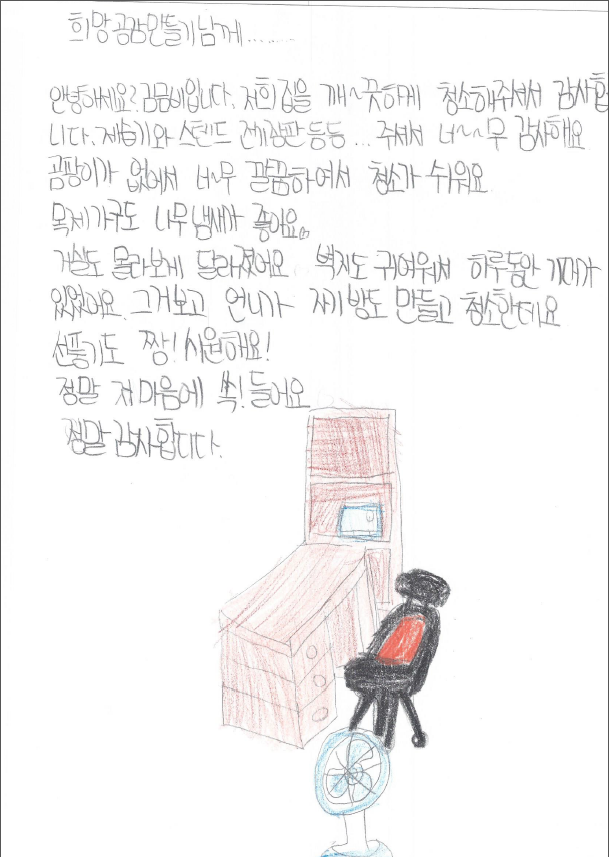 희망공감만들기님께........
안녕하세요? 김금비입니다. 저희집을 깨~끗하게 청소해주셔서 감사합
니다. 제습기와 스텐드 전기장판등등... 주셔서 너~~무 감사해요
곰팡이가 없어서 너~무 깔끔하여서 청소가 쉬워요
목제가구도 나무냄새가 좋아요
거실도 몰라보게 달라졌어요 벽지도 귀여워서 하루동안 기대가
있었어요. 그거보고 언니가 자기방도 만들고 청소한데요
선풍기도 짱! 시원해요!
정말 저 마음에 쏙! 들어요
정말 감사합니다.